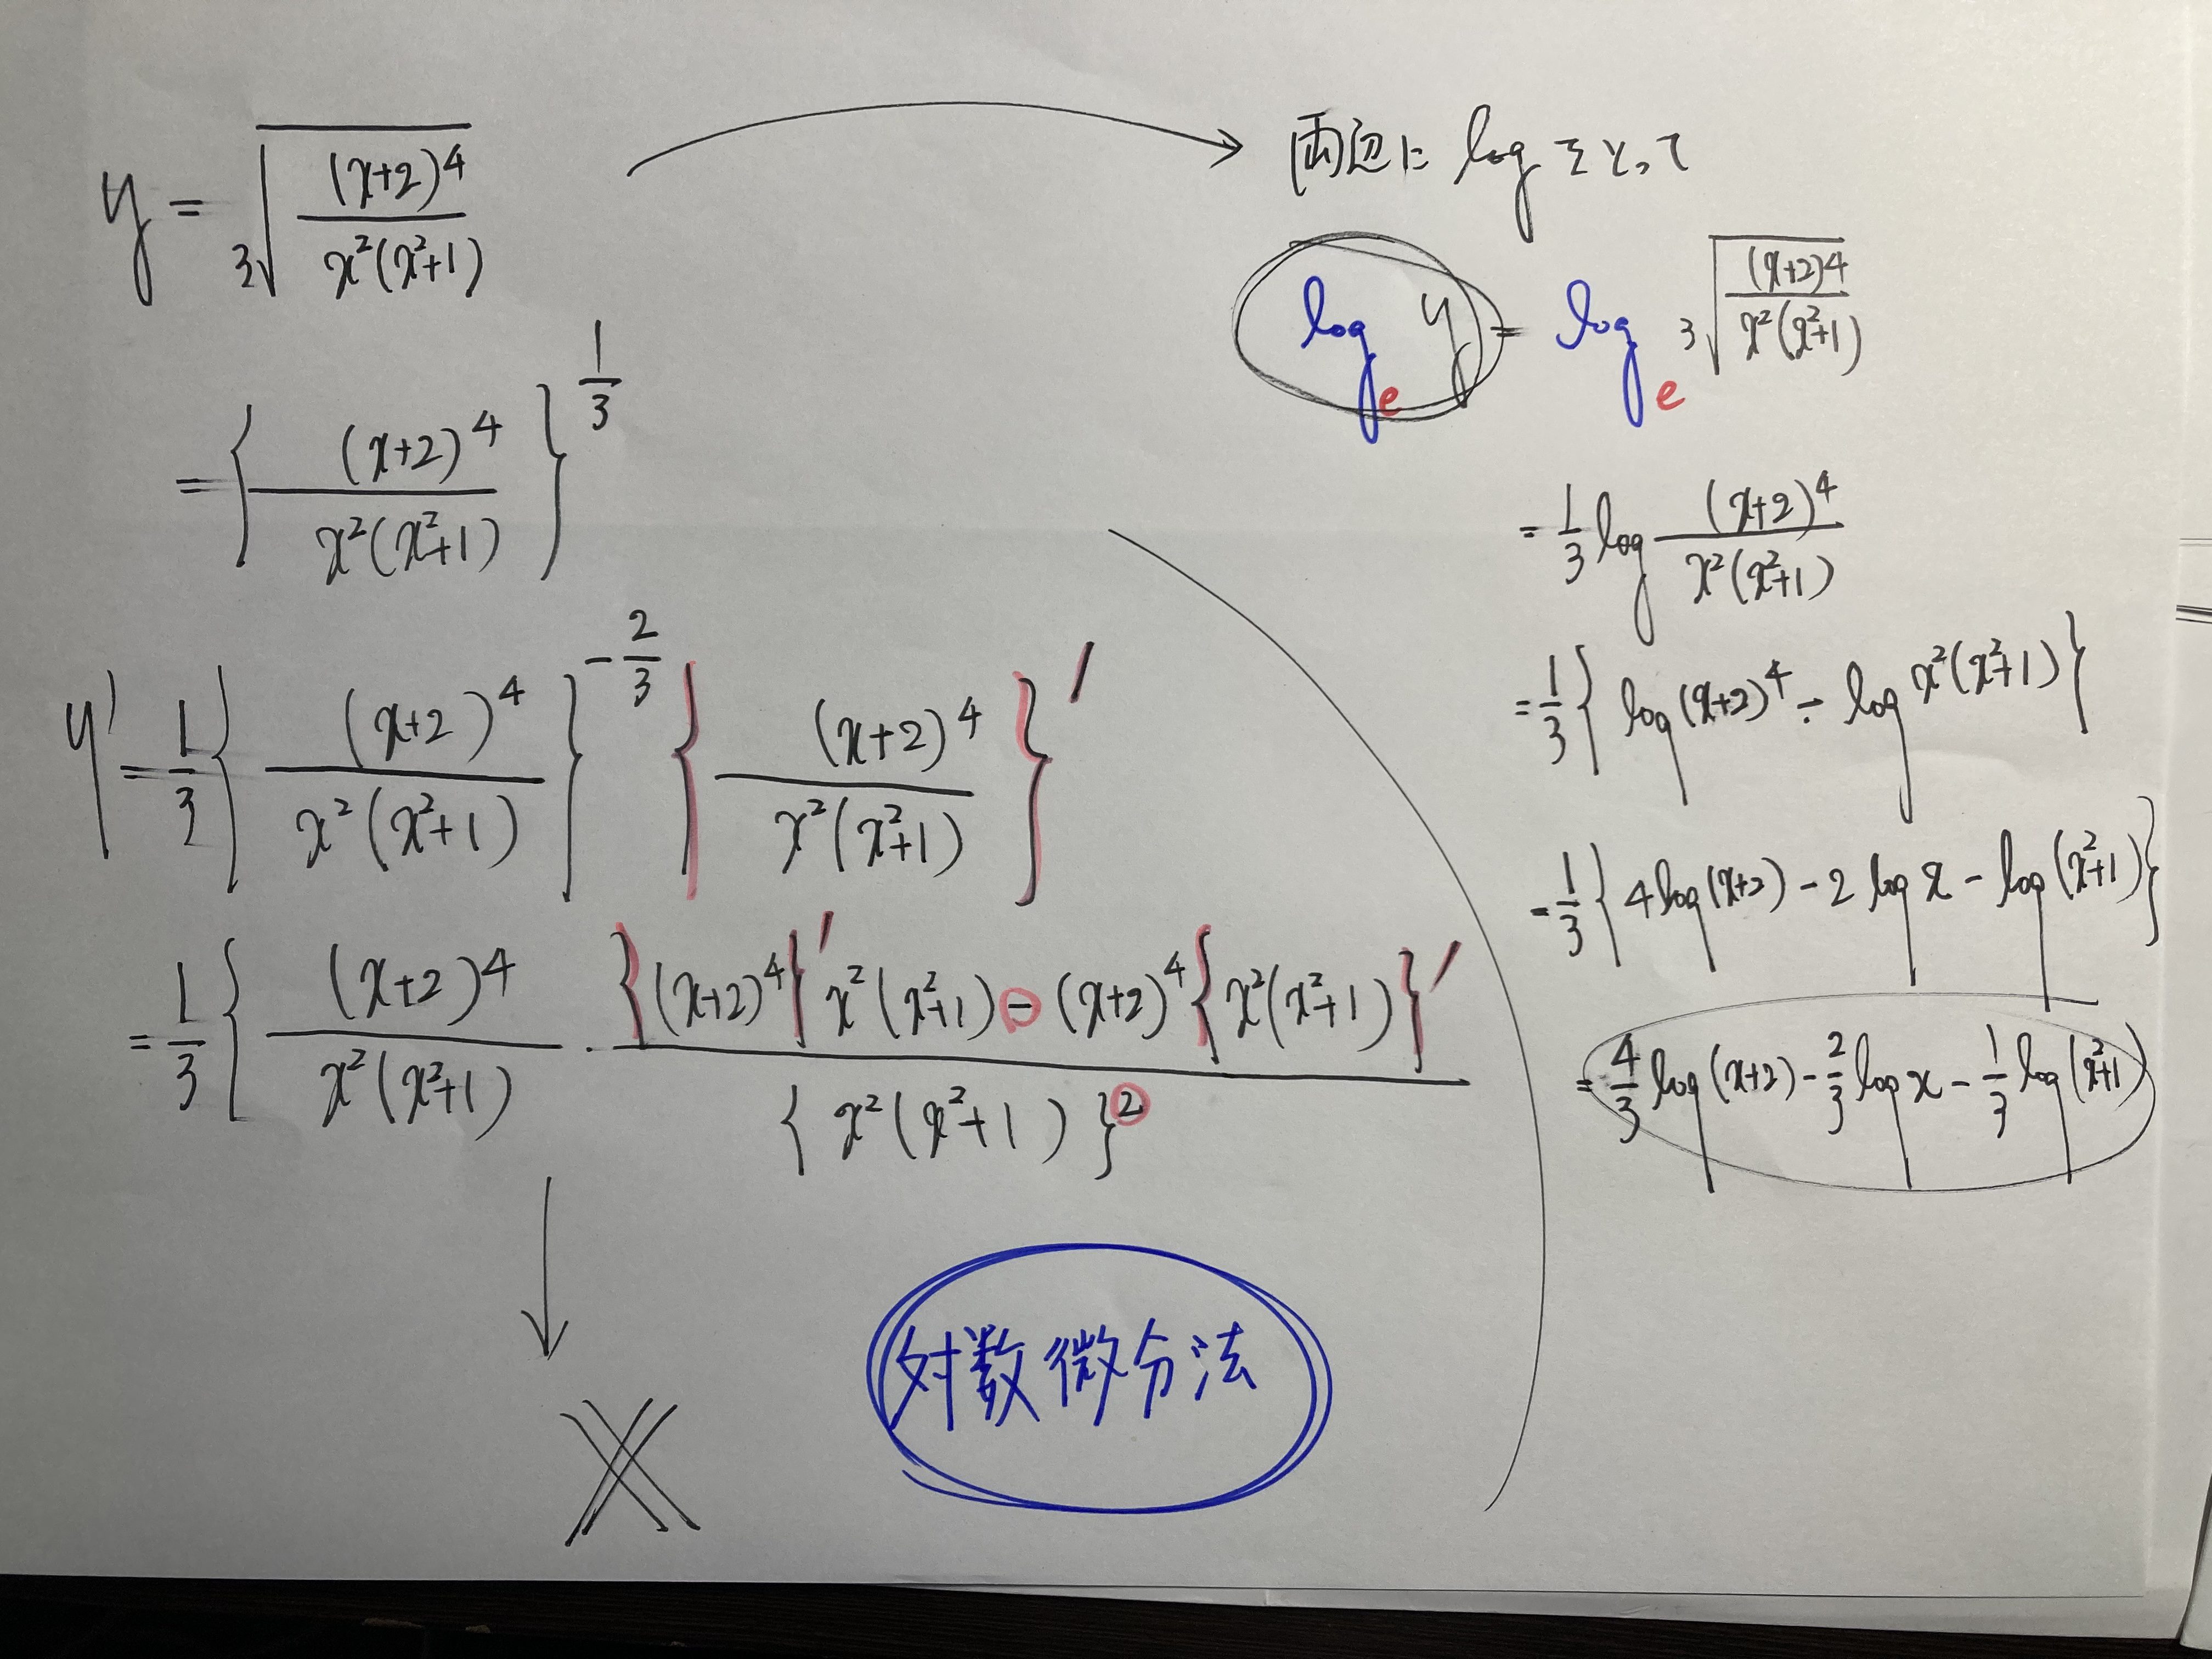 y = ∛((x+2)⁴ / x²(x²+1))
= {(x+2)⁴ / x²(x²+1)}^(1/3)
y' = 1/3 {(x+2)⁴ / x²(x²+1)}^(-2/3) {(x+2)⁴ / x²(x²+1)}'
= 1/3 { (x+2)⁴ / x²(x²+1) · {(x+2)⁴}' x²(x²+1) - (x+2)⁴ {x²(x²+1)}' / {x²(x²+1)}²
対数微分法
両辺に log をとって
log_e y = log_e ∛((x+2)⁴ / x²(x²+1))
= 1/3 log (x+2)⁴ / x²(x²+1)
= 1/3 { log(x+2)⁴ - log x²(x²+1) }
= 1/3 { 4log(x+2) - 2 log x - log(x²+1) }
= 4/3 log(x+2) - 2/3 log x - 1/3 log(x²+1)